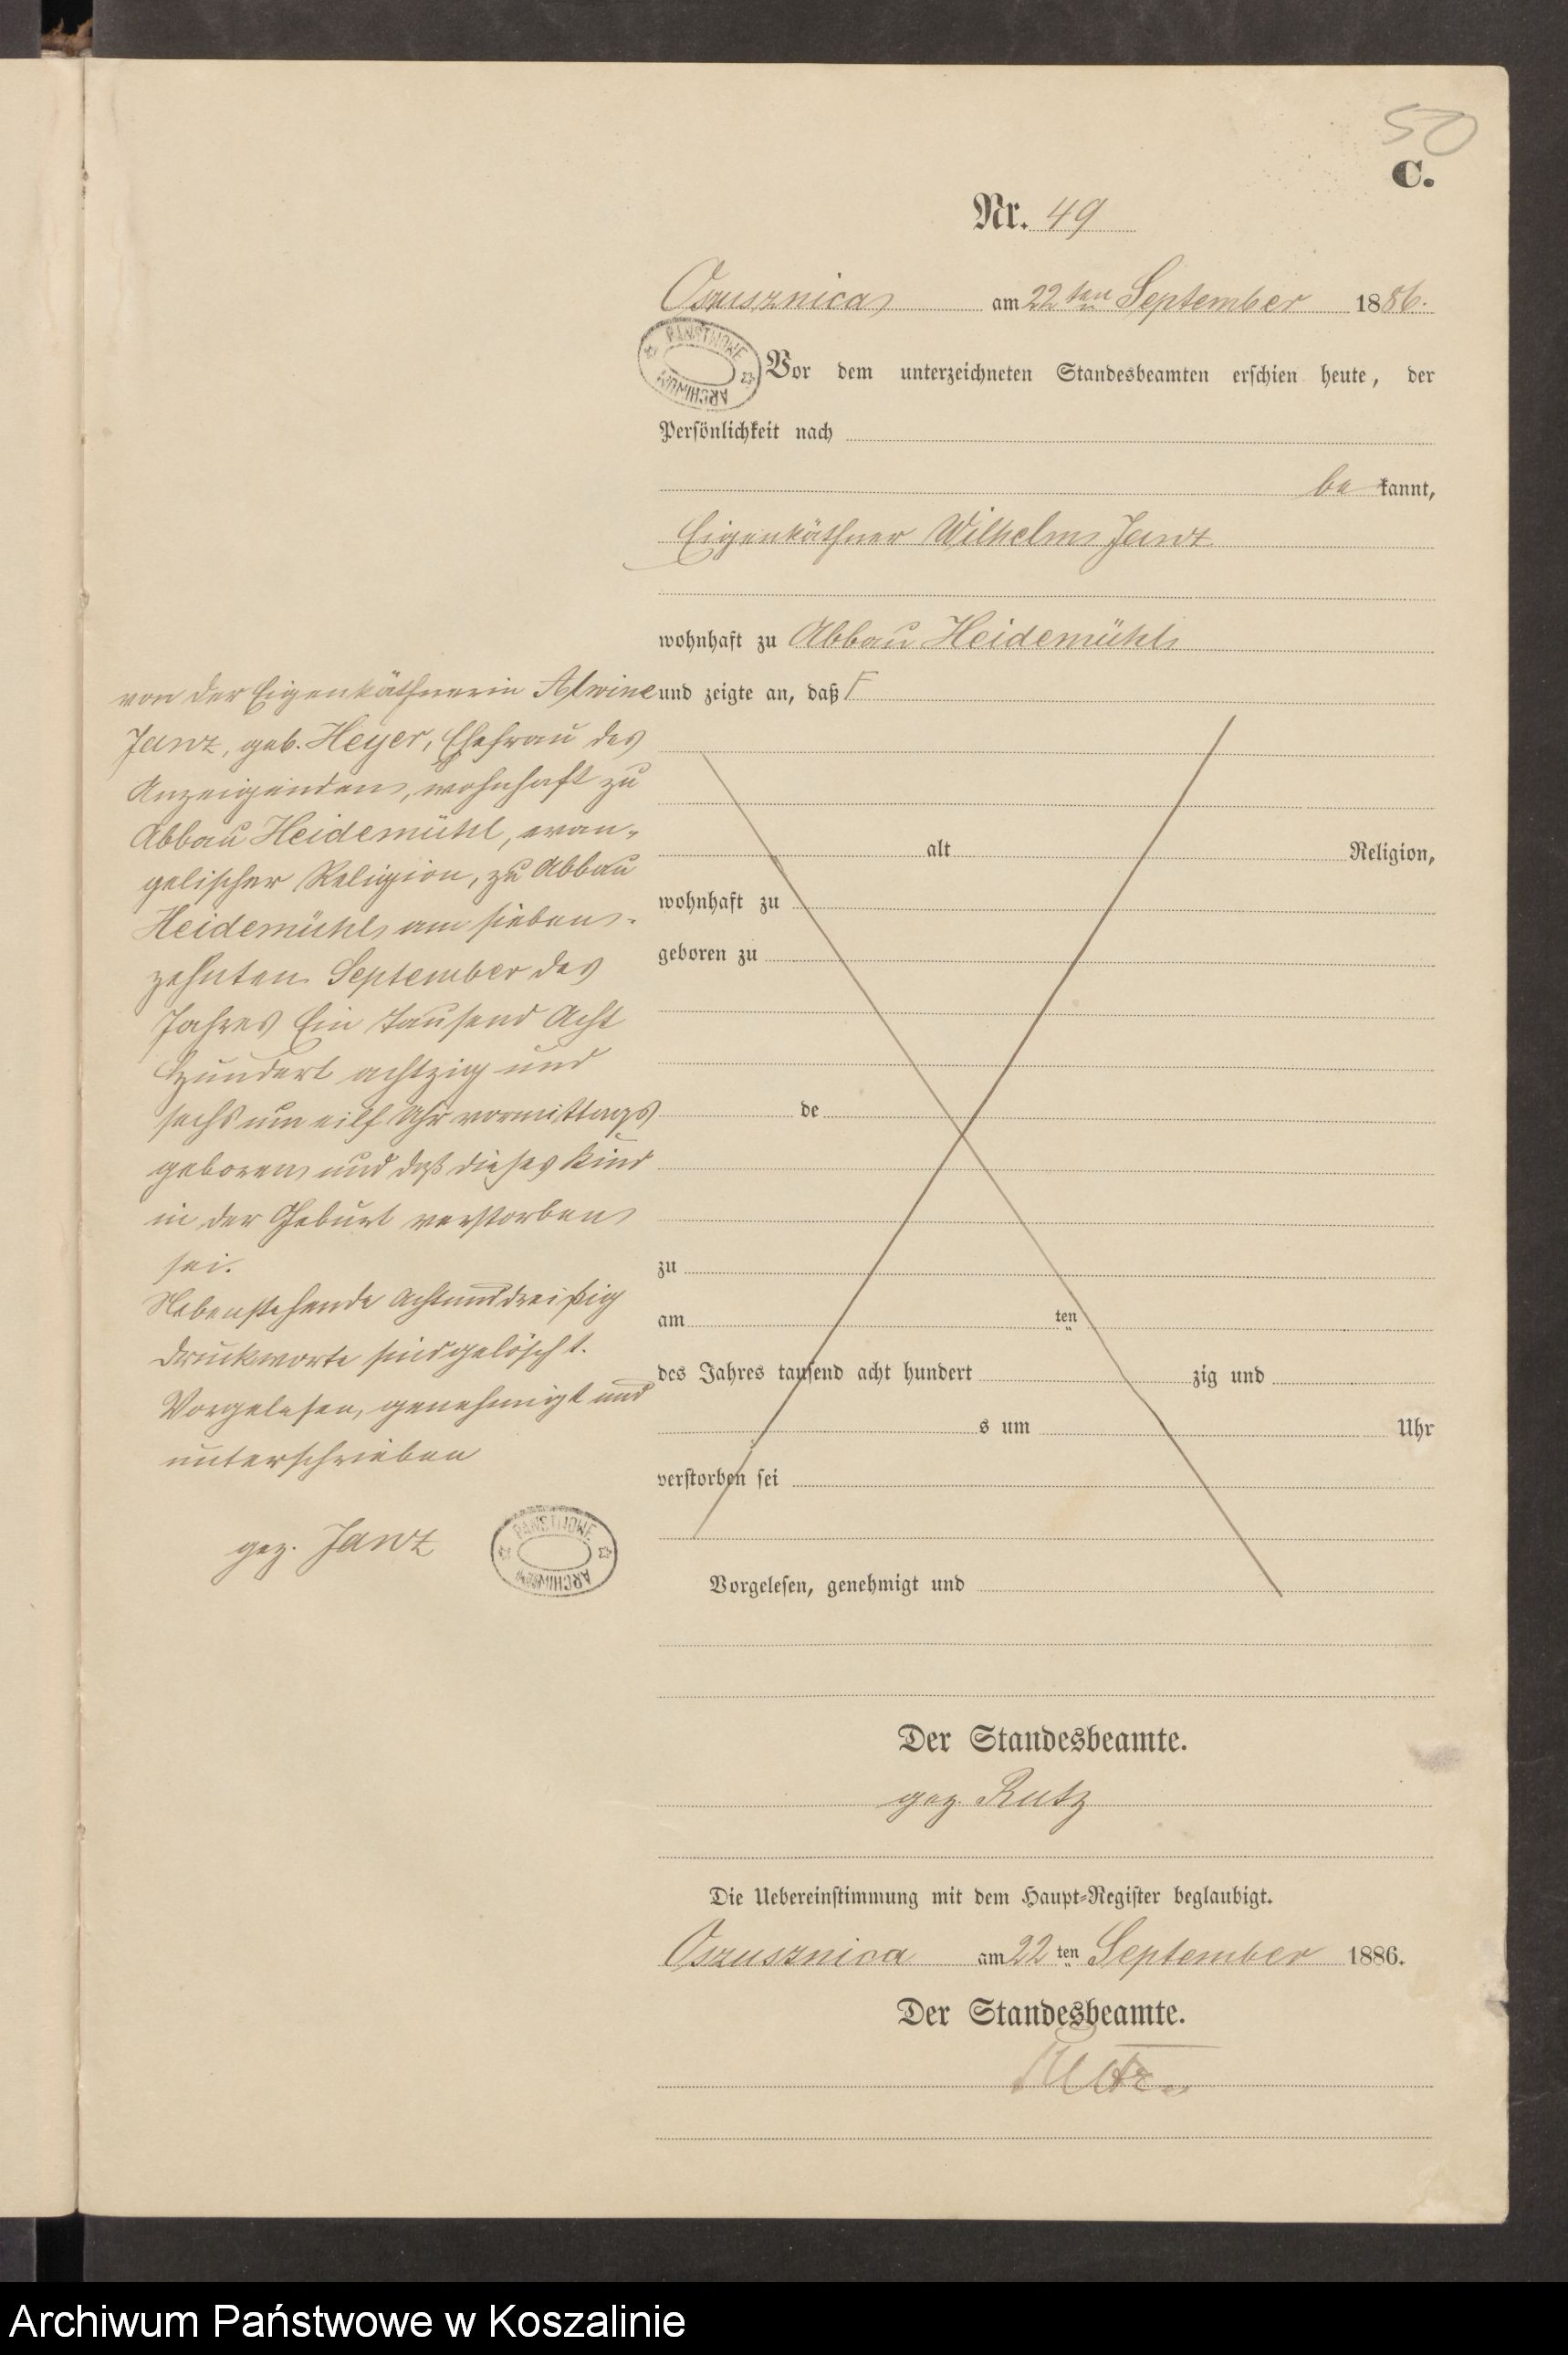 50
C.
Nr. 49
Oszusznica am 22ten September 1886.
PANSTWOWE ARCHIWUM
Vor dem unterzeichneten Standesbeamten erschien heute, der
Persönlichkeit nach
be kannt,
Eigenkäthner Wilhelm Janz
wohnhaft zu Abbau Heidemühl
und zeigte an, daß F
von der Eigenkäthnerin Alwine
Janz, geb. Heyer, Ehefrau des
Anzeigenden, wohnhaft zu
Abbau Heidemühl, evan-
gelischer Religion, zu Abbau
Heidemühl am sieben-
zehnten September des
Jahres Ein tausend Acht
hundert achtzig und
sechs um eilf Uhr vormittags
geboren und daß dieses Kind
in der Geburt verstorben
sei.
Nebenstehende achtunddreißig
Druckworte sind gelöscht.
Vorgelesen, genehmigt und
unterschrieben
gez. Janz
PANSTWOWE ARCHIWUM
alt Religion,
wohnhaft zu
geboren zu
de
zu
am ten
des Jahres tausend acht hundert zig und
s um Uhr
verstorben sei
Vorgelesen, genehmigt und
Der Standesbeamte.
gez. Rutz
Die Uebereinstimmung mit dem Haupt-Register beglaubigt.
Oszusznica am 22ten September 1886.
Der Standesbeamte.
Rutz.
Archiwum Państwowe w Koszalinie